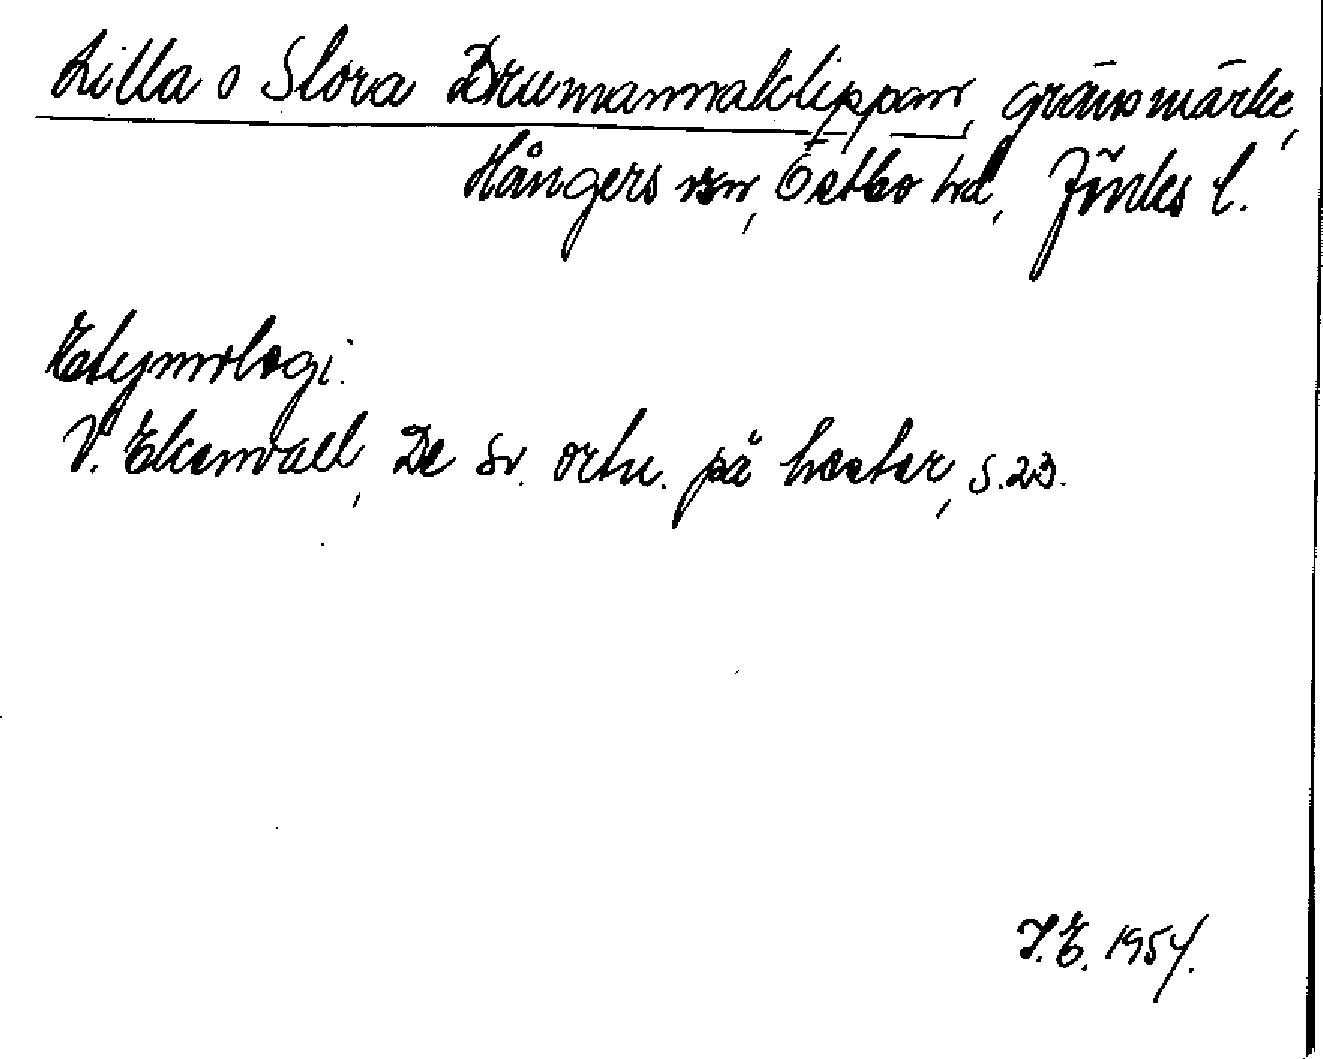 Lilla o Stora Brumannaklippan, gränsmärke,
Hångers sn, Östbo hd, Jönk. l.
Etymologi.
V. Ekenvall, De sv. ortn. på hester, s. 23.
I.E. 1954.